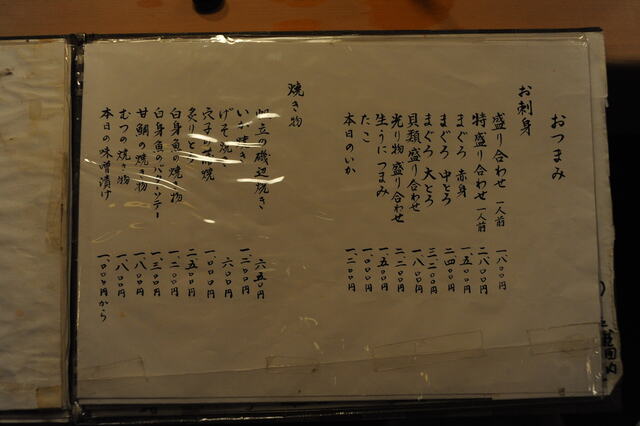 おつまみ
お刺身
盛り合わせ 一人前 一、八〇〇円
特盛り合わせ 一人前 二、八〇〇円
まぐろ 赤身 一、五〇〇円
まぐろ 中とろ 二、四〇〇円
まぐろ 大とろ 三、二〇〇円
貝類盛り合わせ 一、八〇〇円
光り物盛り合わせ 二、二〇〇円
生うにつまみ 一、五〇〇円
たこ 一、〇〇〇円
本日のいか 一、二〇〇円
焼き物
帆立の磯辺焼き 六五〇円
焼き 一、二〇〇円
げそ焼き 六〇〇円
穴子の 焼 一、〇〇〇円
炙りと 二、五〇〇円
白身魚の焼物 一、二〇〇円
白身魚のバタソテー 一、三〇〇円
甘鯛の焼き物 一、八〇〇円
むつの焼き物 一、八〇〇円
本日の味噌漬け 一、〇〇〇円から
範囲内